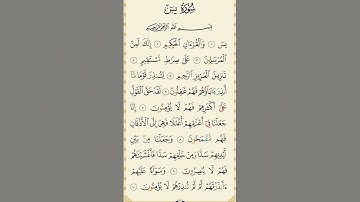 سُورَةُ يسٓ
بِسْمِ ٱللَّهِ ٱلرَّحْمَٰنِ ٱلرَّحِيمِ
يسٓ ١ وَٱلْقُرْءَانِ ٱلْحَكِيمِ ٢ إِنَّكَ لَمِنَ
ٱلْمُرْسَلِينَ ٣ عَلَىٰ صِرَٰطٍ مُّسْتَقِيمٍ ٤
تَنزِيلَ ٱلْعَزِيزِ ٱلرَّحِيمِ ٥ لِتُنذِرَ قَوْمًا مَّآ
أُنذِرَ ءَابَآؤُهُمْ فَهُمْ غَٰفِلُونَ ٦ لَقَدْ حَقَّ ٱلْقَوْلُ
عَلَىٰٓ أَكْثَرِهِمْ فَهُمْ لَا يُؤْمِنُونَ ٧ إِنَّا
جَعَلْنَا فِىٓ أَعْنَٰقِهِمْ أَغْلَٰلًا فَهِىَ إِلَى ٱلْأَذْقَانِ
فَهُم مُّقْمَحُونَ ٨ وَجَعَلْنَا مِنۢ بَيْنِ
أَيْدِيهِمْ سَدًّا وَمِنْ خَلْفِهِمْ سَدًّا فَأَغْشَيْنَٰهُمْ
فَهُمْ لَا يُبْصِرُونَ ٩ وَسَوَآءٌ عَلَيْهِمْ
ءَأَنذَرْتَهُمْ أَمْ لَمْ تُنذِرْهُمْ لَا يُؤْمِنُونَ ١٠